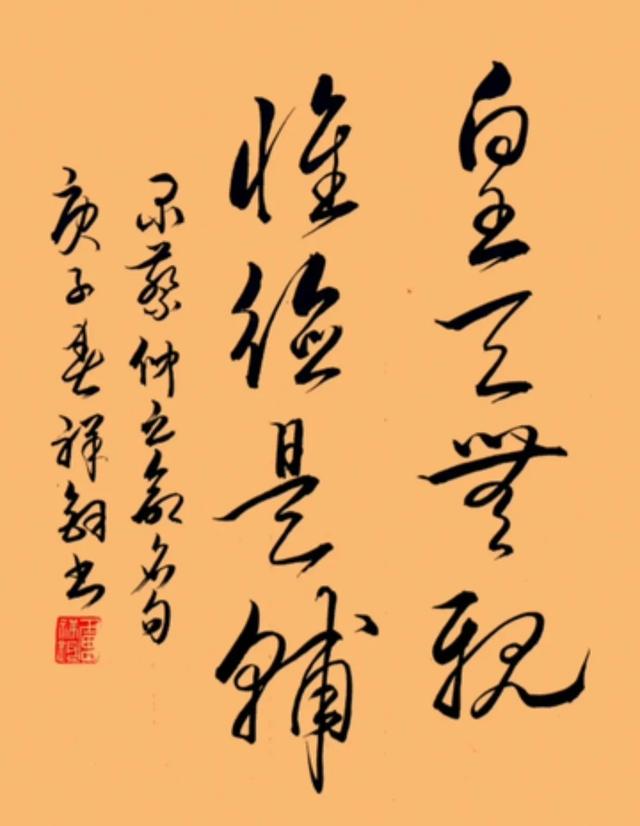 皇天無親
惟德是輔
录蔡仲之命名句
庚子春祥书